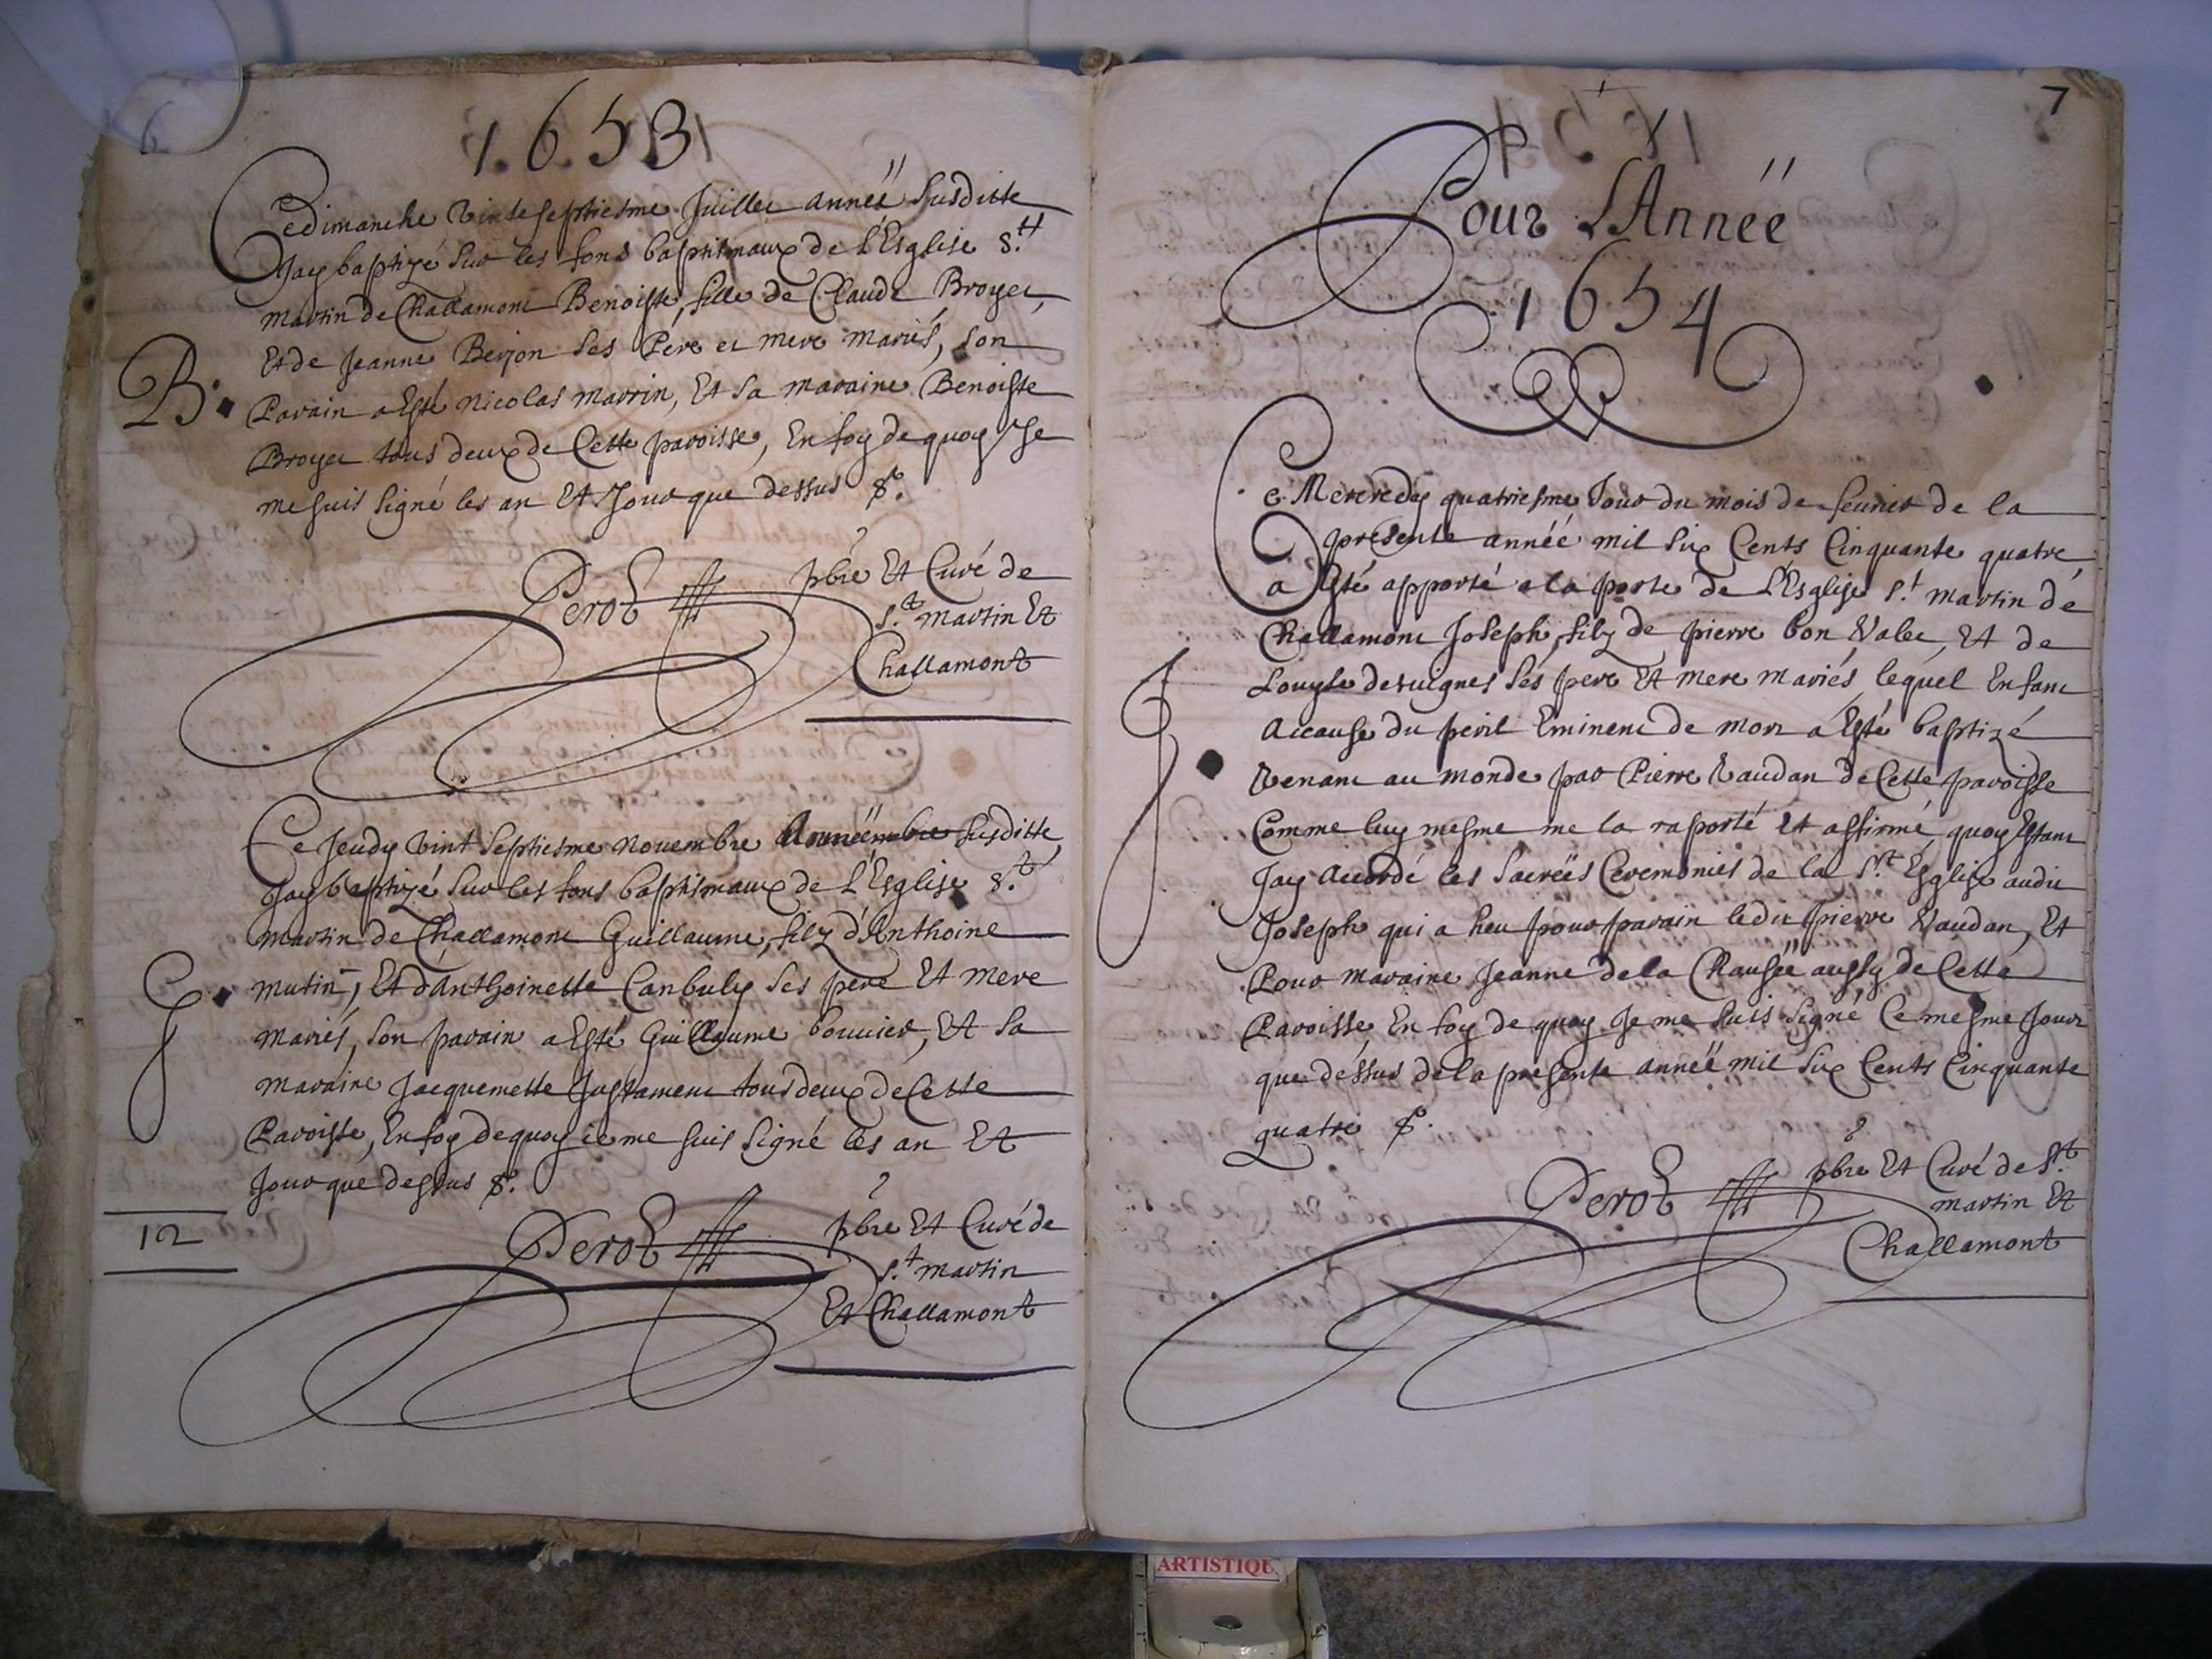 6
1.6.5.3
Ce dimanche Vinteseptiesme Juillet anneë susditte
Jay baptizé sur les fons baptismaux de L'Esglise S.tt
martin de Challamont Benoiste, fille de Claude Broyer,
Et de Jeanne Berjon ses Pére et mere mariés, son
B. Parain a Esté nicolas marrin, Et sa maraine Benoiste
Broyer tous deux de Cette paroisse, En foy de quoy Je
me suis signé les an Et Jour que dessus &.
Perot pbre Et Curé de
S.t martin Et
Challamont
Ce Jeudy Vint septiesme nouembre Anneë susditte
Jay baptizé sur les fons baptismaux de L'Esglise S.t
martin de Challamont Guillaume, filz d'Anthoine
G. mutin, Et d'Anthoinette Canbuly ses pere Et mere
mariés, son parain a Esté Guillaume bouuier, Et sa
maraine Jacquemette Justament tous deux de Cette
Paroisse, En foy de quoy ie me suis signé les an Et
Jour que dessus &.
12
Perot pbre Et Curé de
S.t martin
Et Challamont
7
Pour L'Anneë
1654
Ce Mercredy quatriesme Jour du mois de feurier de la
presente année mil six Cents Cinquante quatre
a Esté apporté a la porte de L'Esglise S.t martin de
Challamont Joseph, filz de pierre bon Valer, Et de
Louyse desuignes ses pere Et mere mariés, lequel Enfant
J. Accause du peril Eminent de mort a Esté baptizé
Venant au monde par Pierre Vaudan de Cette paroisse
Comme luy mesme me la raporté et affirmé, quoy Estant
Jay Accordé les sacreës Ceremonies de la S.te Esglise audit
Joseph qui a heu pour parain ledit pierre Vaudan, Et
Pour maraine Jeanne dela Chauseë aussy de Cette
Paroisse En foy de quoy Je me suis signé Ce mesme Jour
que dessus dela presente anneë mil six Cents Cinquante
quatre &.
Perot pbre Et Curé de S.t
martin Et
Challamont
ARTISTIQU